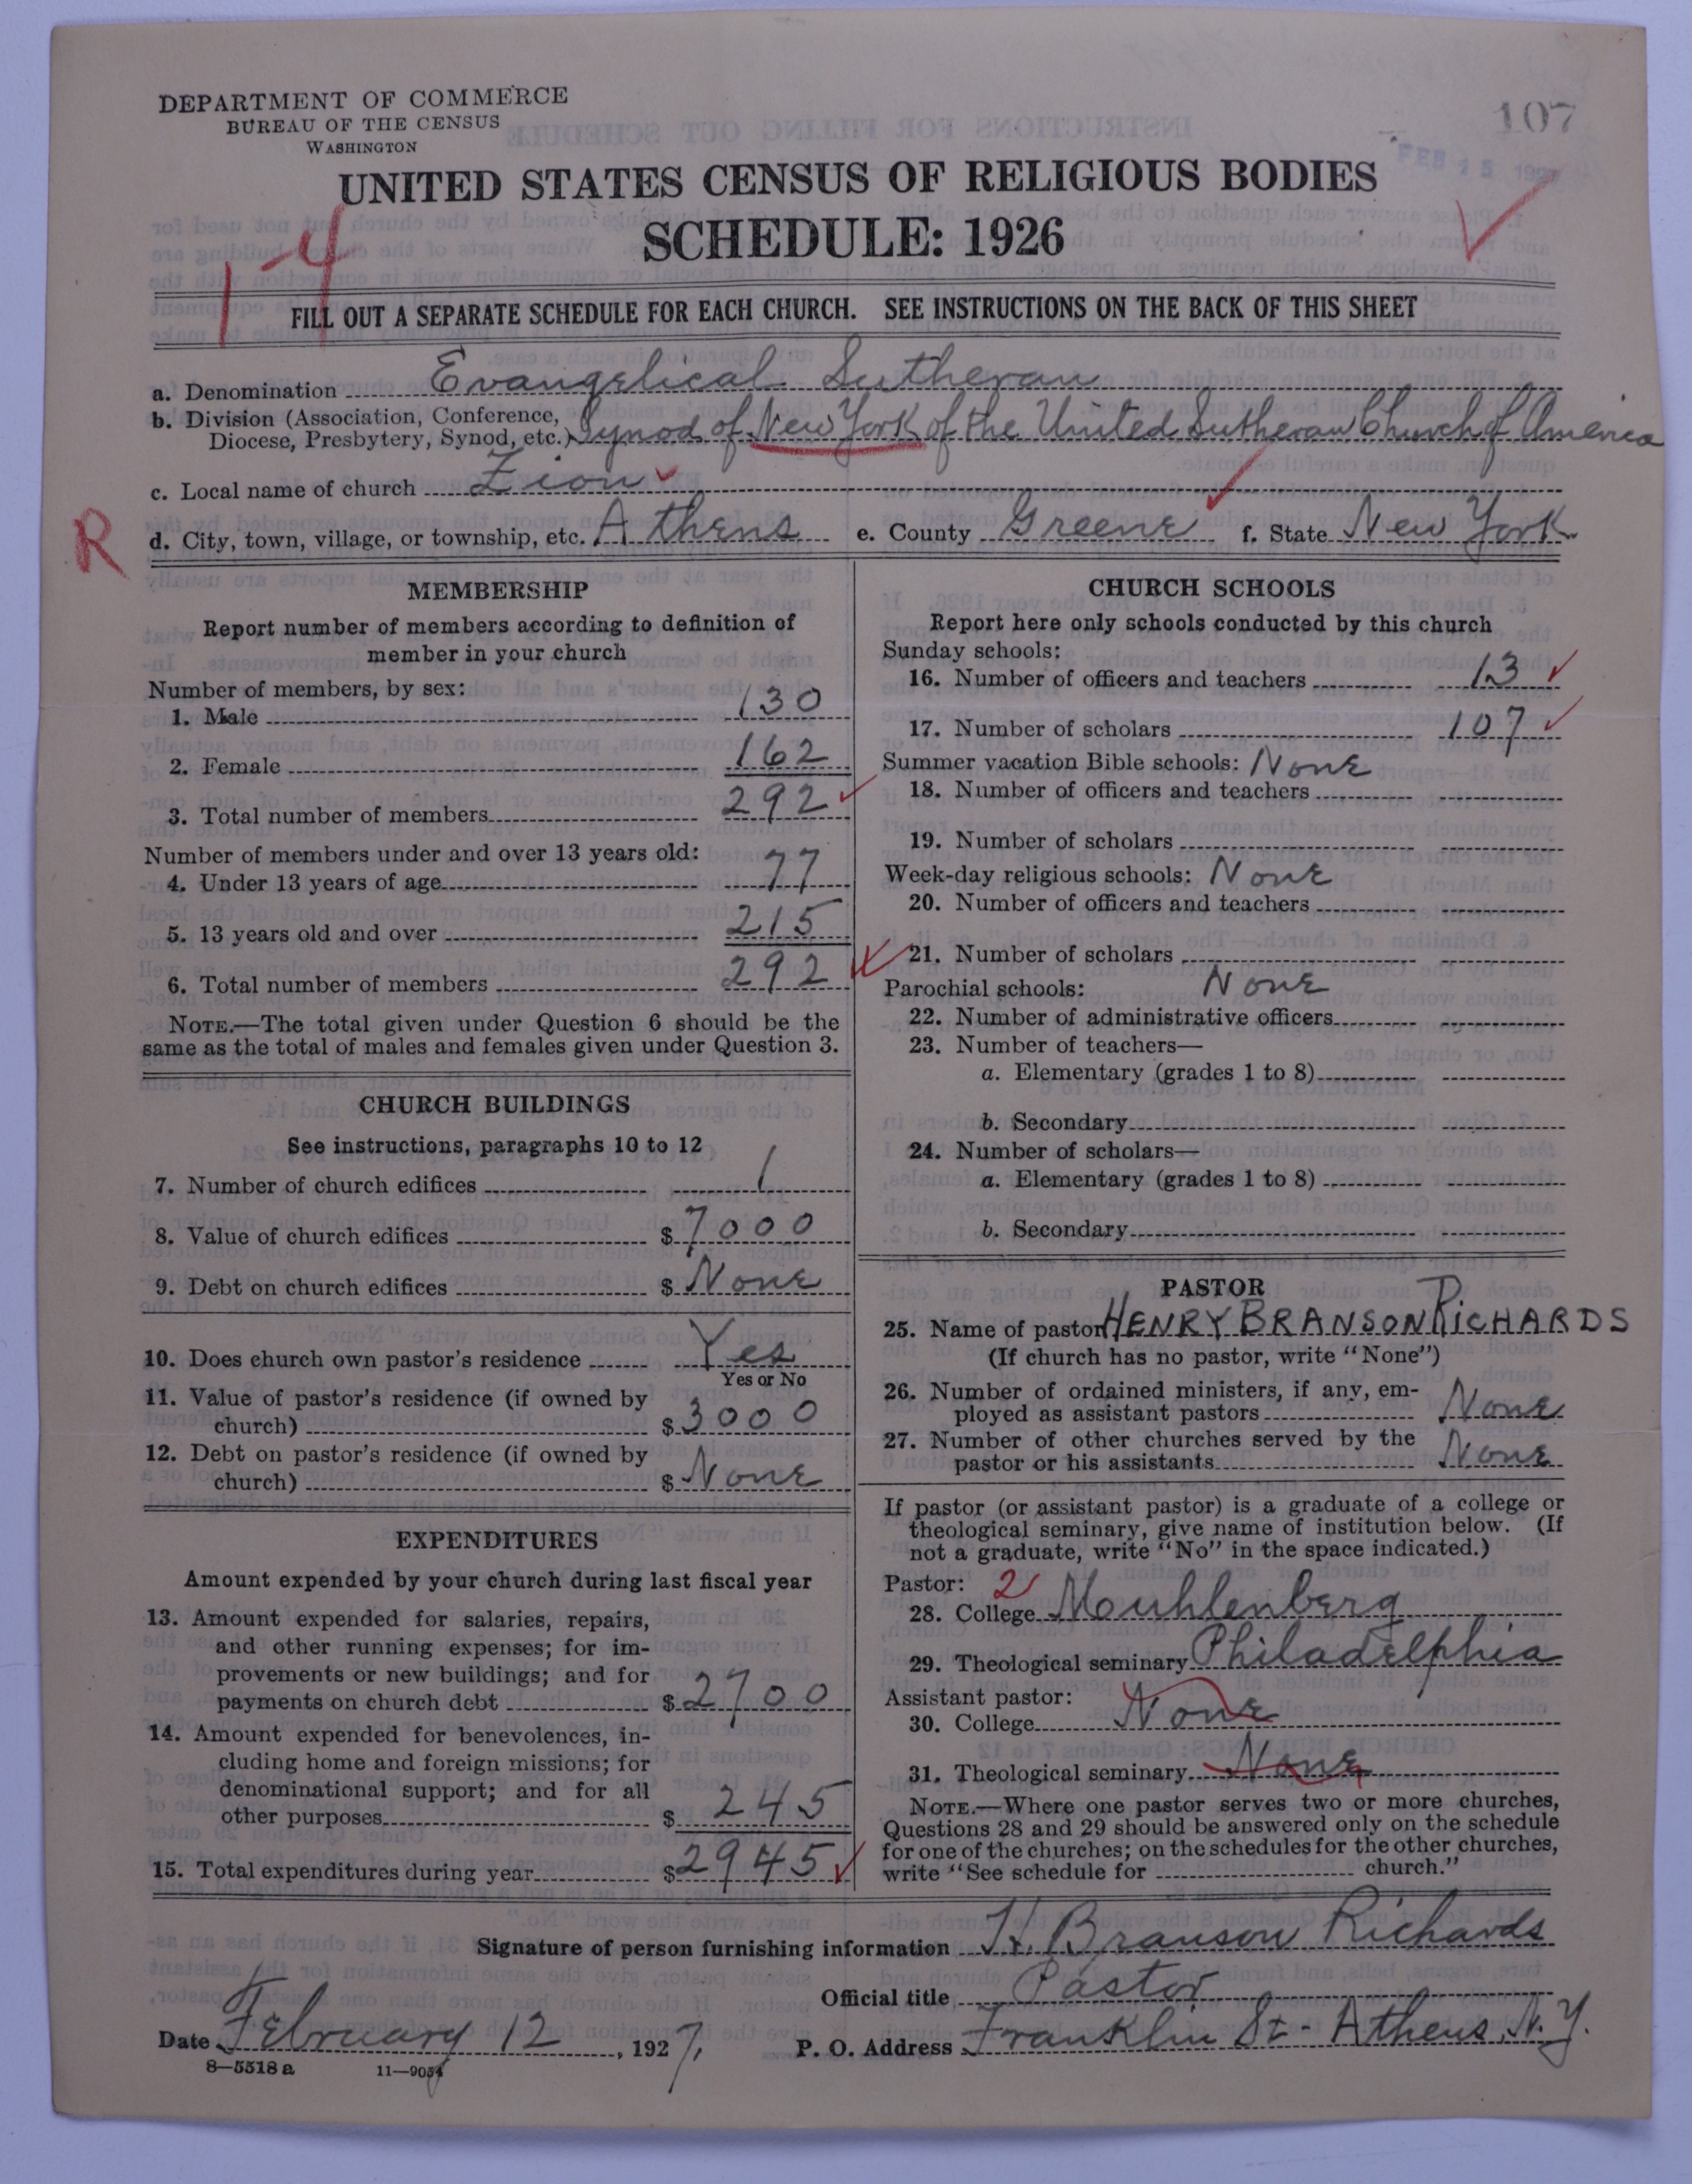 DEPARTMENT OF COMMERCE
BUREAU OF THE CENSUS
WASHINGTON
107
FEB 15 1927
UNITED STATES CENSUS OF RELIGIOUS BODIES
SCHEDULE: 1926
1-4
FILL OUT A SEPARATE SCHEDULE FOR EACH CHURCH. SEE INSTRUCTIONS ON THE BACK OF THIS SHEET
a. Denomination Evangelical Lutheran
b. Division (Association, Conference,
Diocese, Presbytery, Synod, etc.) Synod of New York of the United Lutheran Church of America
c. Local name of church Zion
R
d. City, town, village, or township, etc. Athens e. County Greene f. State New York
MEMBERSHIP
Report number of members according to definition of
member in your church
Number of members, by sex:
1. Male 130
2. Female 162
3. Total number of members 292
Number of members under and over 13 years old:
4. Under 13 years of age 77
5. 13 years old and over 215
6. Total number of members 292
NOTE.—The total given under Question 6 should be the
same as the total of males and females given under Question 3.
CHURCH BUILDINGS
See instructions, paragraphs 10 to 12
7. Number of church edifices 1
8. Value of church edifices $7000
9. Debt on church edifices $ None
10. Does church own pastor's residence Yes
Yes or No
11. Value of pastor's residence (if owned by
church) $3000
12. Debt on pastor's residence (if owned by
church) $ None
EXPENDITURES
Amount expended by your church during last fiscal year
13. Amount expended for salaries, repairs,
and other running expenses; for im-
provements or new buildings; and for
payments on church debt $2700
14. Amount expended for benevolences, in-
cluding home and foreign missions; for
denominational support; and for all
other purposes $ 245
15. Total expenditures during year $2945
CHURCH SCHOOLS
Report here only schools conducted by this church
Sunday schools:
16. Number of officers and teachers 13
17. Number of scholars 107
Summer vacation Bible schools: None
18. Number of officers and teachers
19. Number of scholars
Week-day religious schools: None
20. Number of officers and teachers
21. Number of scholars
Parochial schools: None
22. Number of administrative officers
23. Number of teachers—
a. Elementary (grades 1 to 8)
b. Secondary
24. Number of scholars—
a. Elementary (grades 1 to 8)
b. Secondary
PASTOR
25. Name of pastor HENRY BRANSON RICHARDS
(If church has no pastor, write "None")
26. Number of ordained ministers, if any, em-
ployed as assistant pastors None
27. Number of other churches served by the
pastor or his assistants None
If pastor (or assistant pastor) is a graduate of a college or
theological seminary, give name of institution below. (If
not a graduate, write "No" in the space indicated.)
Pastor: 2
28. College Mouhlenberg
29. Theological seminary Philadelphia
Assistant pastor:
30. College None
31. Theological seminary None
NOTE.—Where one pastor serves two or more churches,
Questions 28 and 29 should be answered only on the schedule
for one of the churches; on the schedules for the other churches,
write "See schedule for church."
Signature of person furnishing information H. Branson Richards
Official title Pastor
Date February 12, 1927. P. O. Address Franklin St- Athens, N.Y.
8—5518 a 11—9054